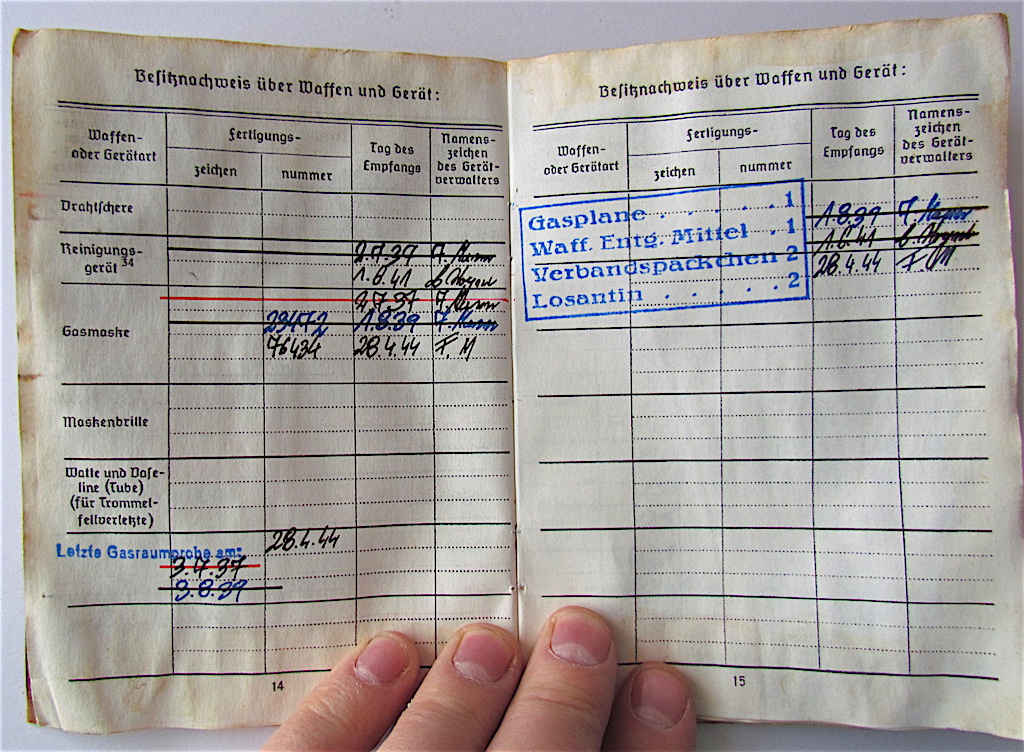 Besitznachweis über Waffen und Gerät:
Waffen-
oder Gerätart
Fertigungs-
zeichen
nummer
Tag des
Empfangs
Namens-
zeichen
des Gerät-
verwalters
Drahtschere
Reinigungs-
gerät 34
2.7.37
1.8.41
Gasmaske
2.7.37
23472 1.8.39
76434 28.4.44 F. M
Maskenbrille
Watte und Vase-
line (Tube)
(für Trommel-
fellverletzte)
28.4.44
Letzte Gasraumprobe am:
3.7.37
3.8.39
14
Besitznachweis über Waffen und Gerät:
Waffen-
oder Gerätart
Fertigungs-
zeichen
nummer
Tag des
Empfangs
Namens-
zeichen
des Gerät-
verwalters
Gasplane . . . . . 1
Waff. Entg. Mittel . 1
Verbandspäckchen 2
Losantin . . . . . 2
1.8.39
1.8.41
28.4.44 F. M
15